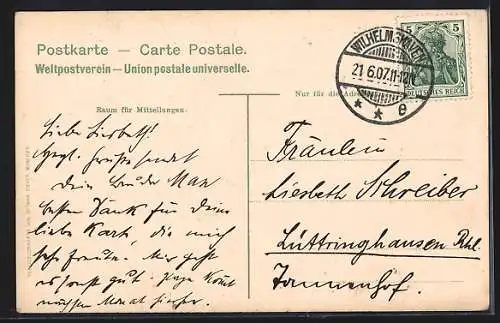 Postkarte — Carte Postale.
Weltpostverein — Union postale universelle.
WILHELMSHAVEN
21.6.07.11-12N
* * e
5 5
DEUTSCHES REICH
Nur für die Adresse
Raum für Mitteilungen.
Liebe Lisbeth!
Herzl. Grüße sendet
Dein Bruder Max
besten Dank für Deine
liebe Karte, die mich
sehr freute. Mir geht
es sonst gut.
nächsten Monat hierher.
Fräulein
Liesbeth Schreiber
Lüttringhausen Rhl.
Tannenhof.